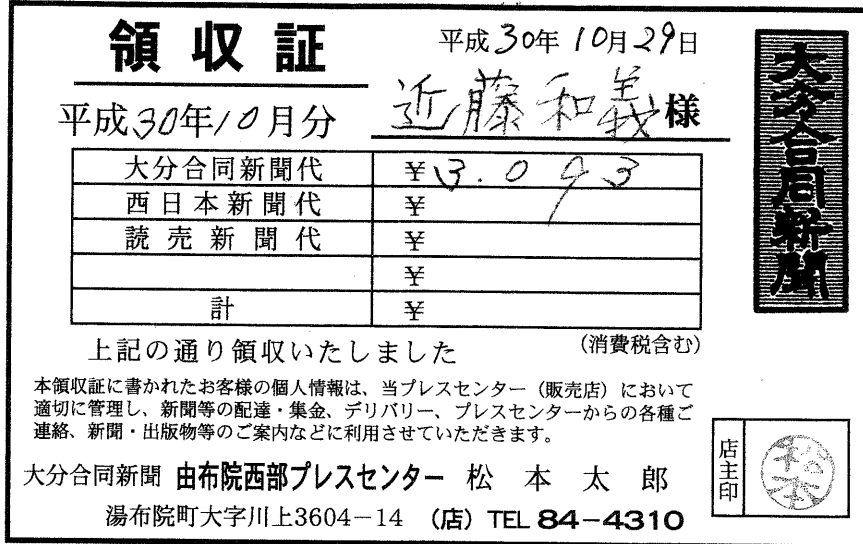 領収証
平成30年10月29日
平成30年10月分
近藤和義様
大分合同新聞代 ¥3.093
西日本新聞代 ¥
読売新聞代 ¥
¥
計 ¥
上記の通り領収いたしました
(消費税含む)
本領収証に書かれたお客様の個人情報は、当プレスセンター（販売店）において
適切に管理し、新聞等の配達・集金、デリバリー、プレスセンターからの各種ご
連絡、新聞・出版物等のご案内などに利用させていただきます。
大分合同新聞 由布院西部プレスセンター 松本太郎
湯布院町大字川上3604－14 （店）TEL 84－4310
大分合同新聞
店主印
松本